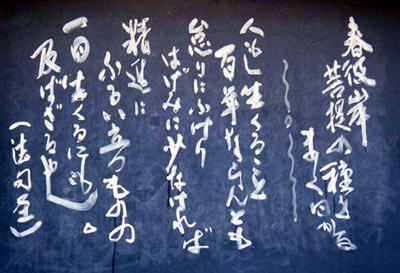 春彼岸
菩提の種を
まく日かな
人もし生くること
百年ならんとも
怠りにふけり
はげみに少なければ
精進に
ふるい立つものの
一日生くるにも
及ばざるなり
(法句経)